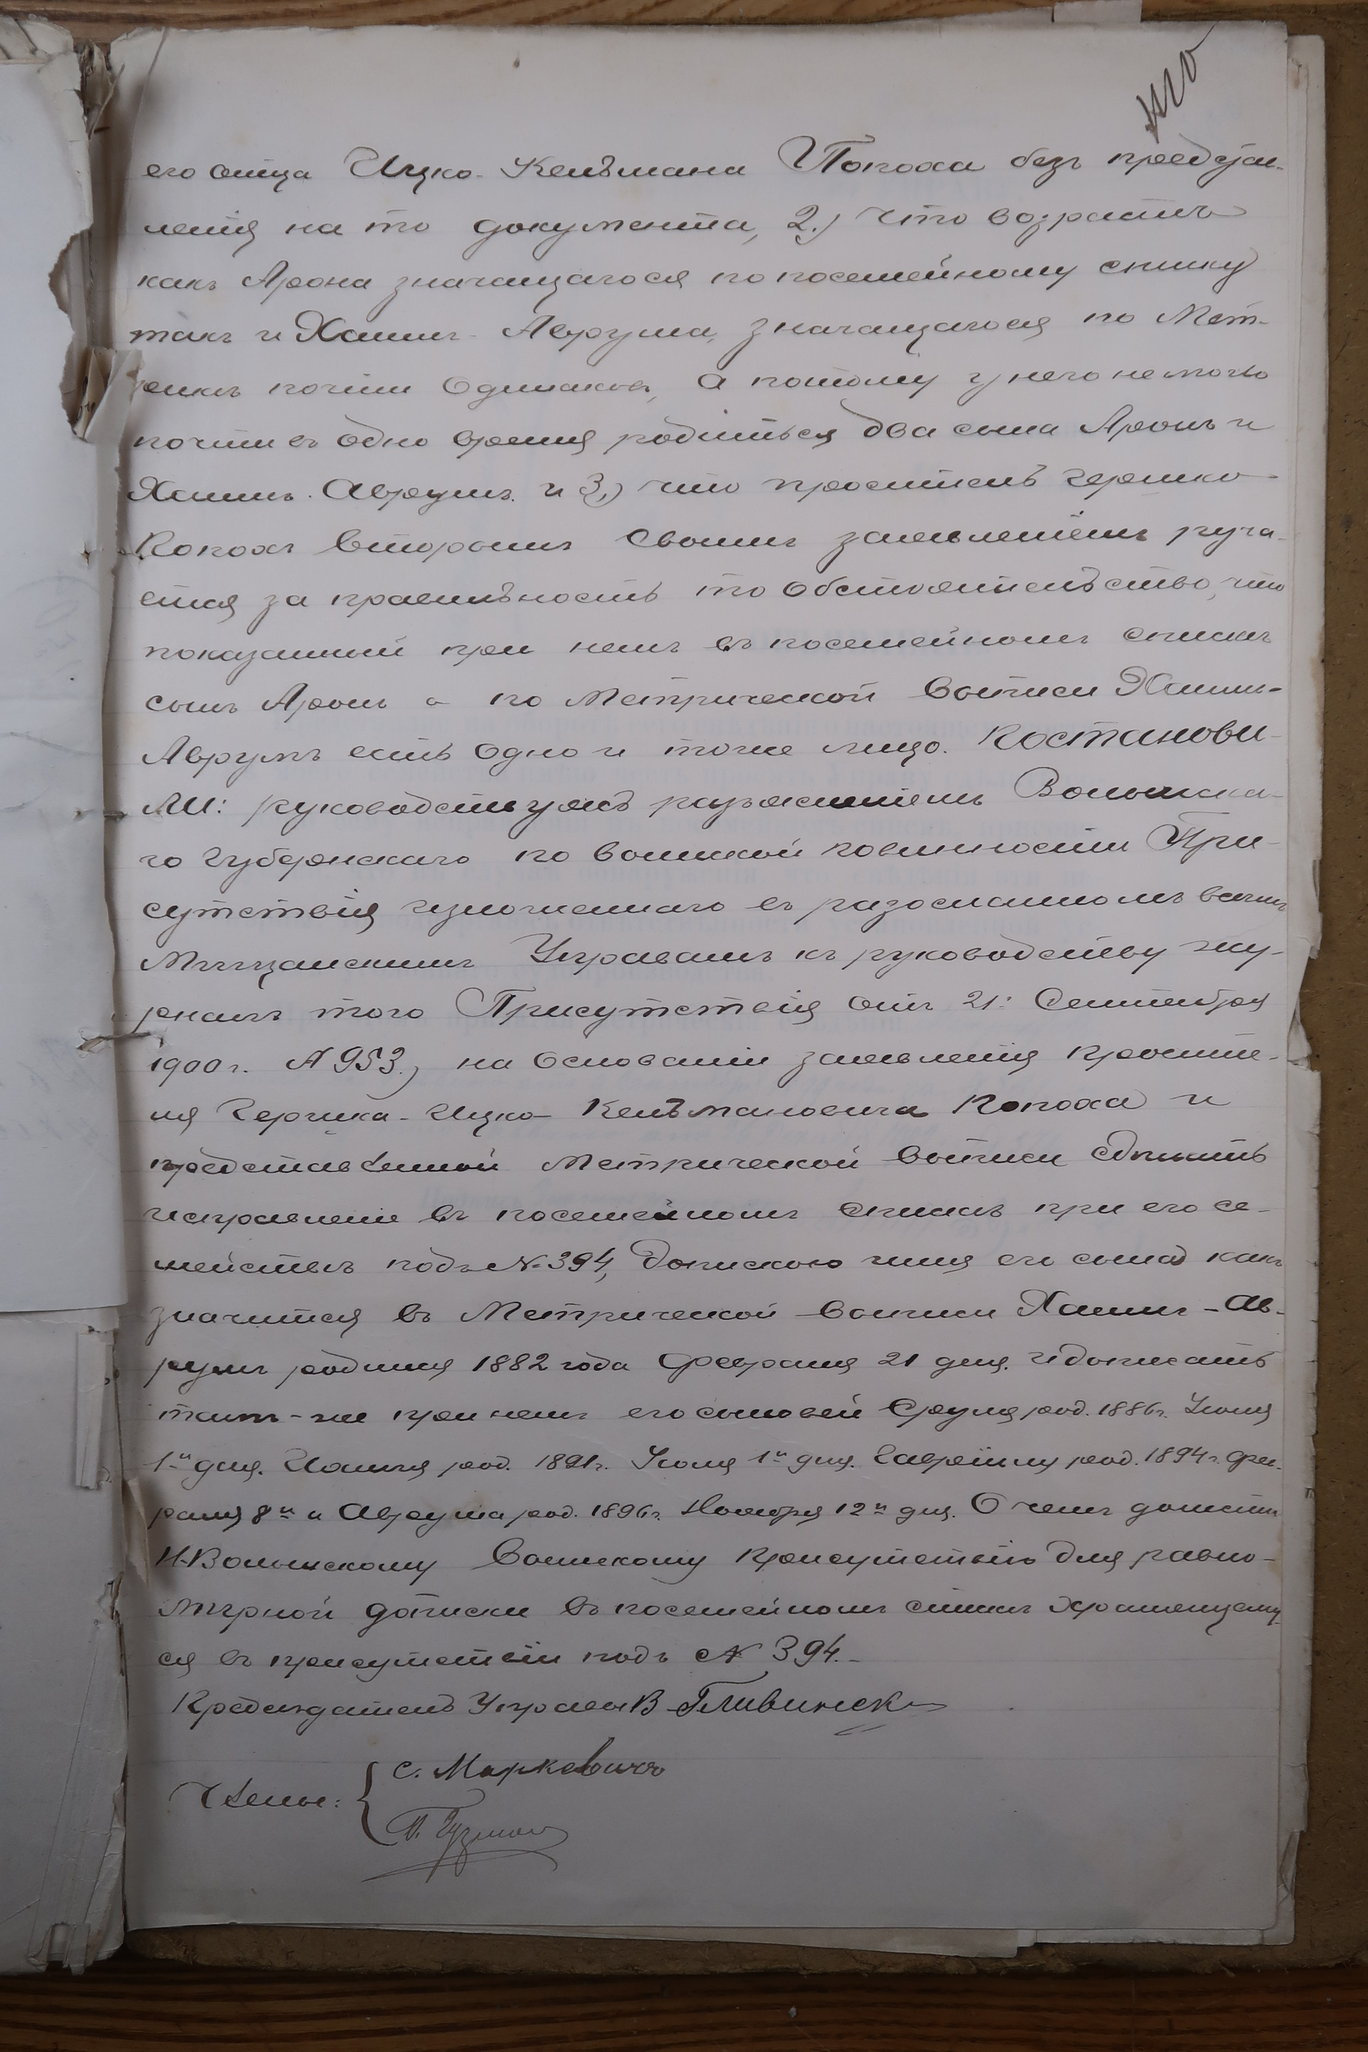 его отца Ицко-Кельмана Покоха безъ представ-
ленія на то документа, 2.) что возрастъ
какъ Арона значащагося по посемейному списку
такъ и Хаимъ-Аврума, значащагося по Мет-
рикѣ почти одинаковъ, а потому у него не могло
почти въ одно время родиться два сына Аронъ и
Хаимъ-Аврумъ и 3.) что проситель Гершко-
Покохъ вторымъ своимъ заявленіемъ руча-
ется за правильность то обстоятельство, что
показанный при немъ въ посемейномъ спискѣ
сынъ Аронъ а по Метрической выписи Хаимъ-
Аврумъ есть одно и тоже лицо. Постанови-
ли: руководствуясь разъясненіемъ Волынска-
го Губернскаго по воинской повинности При-
сутствія изложеннаго въ разосланномъ всѣмъ
Мѣщанскимъ Управамъ къ руководству жу-
рналѣ того Присутствія отъ 21: Сентября
1900 г. № 953., на основаніи заявленія просите-
ля Гершка-Ицко Кельмановича Покоха и
представленной Метрической выписи сдѣлать
исправленіе въ посемейномъ спискѣ при его се-
мействѣ подъ № 394, допискою имя его сына какъ
значится въ Метрической выписи Хаимъ-Ав-
румъ родился 1882 года Февраля 21 дня. и дописать
тамъ-же при немъ его сыновей Сруля род. 1886 г. Іюля
1го дня. род. 1891 г. Іюля 1го дня. род. 1894 г. Фев-
раля 8го и Аврума род. 1896 г. Ноября 12го дня. О чемъ донести
Н-Волынскому Воинскому Присутствію для равно-
мѣрной дописки въ посемейномъ спискѣ хранящему-
ся въ присутствіи подъ № 394.-
Предсѣдатель Управы В Гливинск
Члены: { С. Маркевичъ